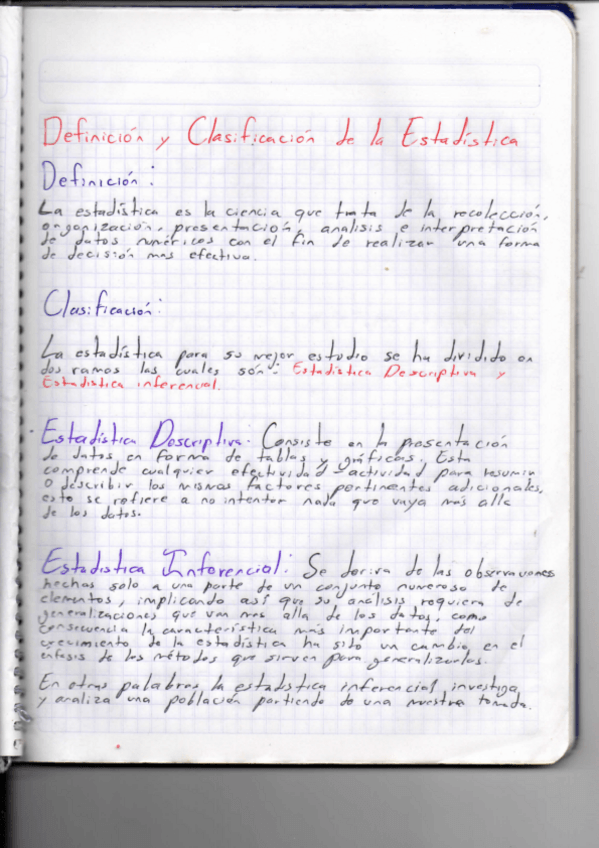 Definición y Clasificación de la Estadística
Definición:
La estadística es la ciencia que trata de la recolección,
organización, presentación, analisis e interpretación
de datos numéricos con el fin de realizar una forma
de decisión mas efectiva.
Clasificación:
La estadística para su mejor estudio se ha dividido en
dos ramas las cuales són: Estadística Descriptiva y
Estadistica inferencial.
Estadística Descriptiva: Consiste en la presentación
de datos en forma de tablas y gráficas. Esta
comprende cualquier efectividad actividad para resumir
o describir los mismos factores pertinentes adicionales,
esto se refiere a no intentar nada que vaya más alla
de los datos.
Estadistica Inferencial: Se deriva de las observaciones
hechas solo a una parte de un conjunto numeroso de
elementos, implicando así que su análisis requiera de
generalizaciones que van mas alla de los datos, como
consecuencia la característica más importante del
crecimiento de la estadística ha sido un cambio en el
enfasis de los métodos que sirven para generalizarlos.
En otras palabras la estadistica inferencial investiga
y analiza una población partiendo de una muestra tomada.